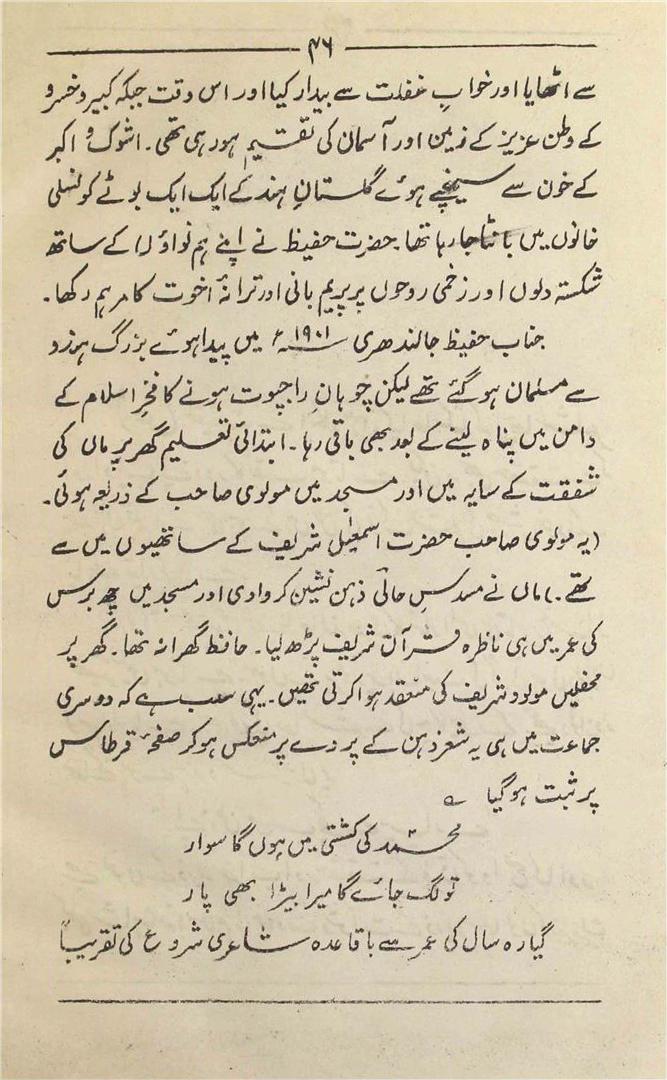 ۴۶
سے اٹھایا اور خوابِ غفلت سے بیدار کیا اور اس وقت جبکہ کبیر و خسرو
کے وطن عزیز کے زمین اور آسمان کی تقسیم ہو رہی تھی۔ اشوک و اکبر
کے خون سے سینچے ہوئے گلستانِ ہند کے ایک ایک بوٹے کو نسلی
خانوں میں بانٹا جا رہا تھا۔ حضرت حفیظ نے اپنے ہم نواؤں کے ساتھ
شکستہ دلوں اور زخمی روحوں پر پریم بانی اور ترانۂ اخوت کا مرہم رکھا۔
جناب حفیظ جالندھری ۱۹۰۱ء میں پیدا ہوئے بزرگ ہر زد
سے مسلمان ہو گئے تھے لیکن چوہان راجپوت ہونے کا فخر اسلام کے
دامن میں پناہ لینے کے بعد بھی باقی رہا۔ ابتدائی تعلیم گھر پر ماں کی
شفقت کے سایہ میں اور مسجد میں مولوی صاحب کے ذریعہ ہوئی۔
(یہ مولوی صاحب حضرت اسمعٰیل شریف کے ساتھیوں میں سے
تھے۔) ماں نے مسدسِ حالیؔ ذہن نشین کروادی اور مسجد میں چھ برس
کی عمر میں ہی ناظرہ قرآن شریف پڑھ لیا۔ حافظ گھرانہ تھا۔ گھر پر
محفلیں مولود شریف کی منعقد ہوا کرتی تھیں۔ یہی سبب ہے کہ دوسری
جماعت میں ہی یہ شعر ذہن کے پردے پر منعکس ہو کر صفحۂ قرطاس
پر ثبت ہو گیا ؎
محمّد کی کشتی میں ہوں گا سوار
تو لگ جائے گا میرا بیڑا بھی پار
گیارہ سال کی عمر سے باقاعدہ شاعری شروع کی تقریباً